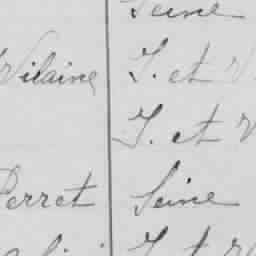 Seine
Vilaine I. et V
I. et V
Perret Seine